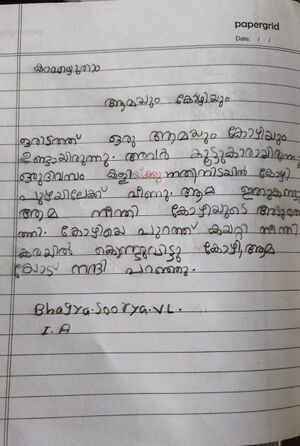 papergrid
Date: / /
കഥയെഴുതാം
ആമയും കോഴിയും
ഒരിടത്ത് ഒരു ആമയും കോഴിയും
ഉണ്ടായിരുന്നു. അവർ കൂട്ടുകാരായിരുന്നു.
ഒരുദിവസം കളിയ്ക്കുന്നതിനിടയിൽ കോഴി
പുഴയിലേക്ക് വീണു. ആമ ഇതുകണ്ടു
ആമ നീന്തി കോഴിയുടെ അടുത്തെ
ത്തി. കോഴിയെ പുറത്ത് കയറ്റി നീന്തി
കരയിൽ കൊണ്ടുവിട്ടു കോഴി, ആമ
യോട് നന്ദി പറഞ്ഞു.
Bhagya.Soorya.V.L.
I. A